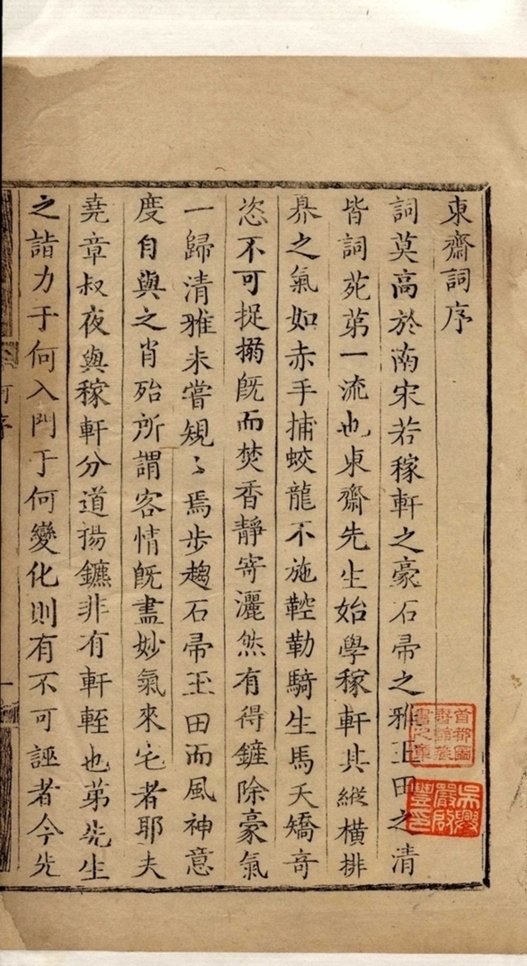 東齋詞序
詞莫高於南宋若稼軒之豪石帚之雅玉田之清
皆詞苑苐一流也東齋先生始學稼軒其縱橫排
奡之氣如赤手捕蛟龍不施鞚勒騎生馬夭矯奇
恣不可捉搦旣而焚香靜寄灑然有得鏟除豪氣
一歸清雅未嘗規〻焉步趨石帚玉田而風神意
度自與之肖殆所謂客情旣盡妙氣來宅者耶夫
堯章叔夜與稼軒分道揚鑣非有軒輊也弟先生
之詣力于何入門于何變化則有不可誣者今先
首都圖
書館藏
書之章
吳興
嚴啟
豐印